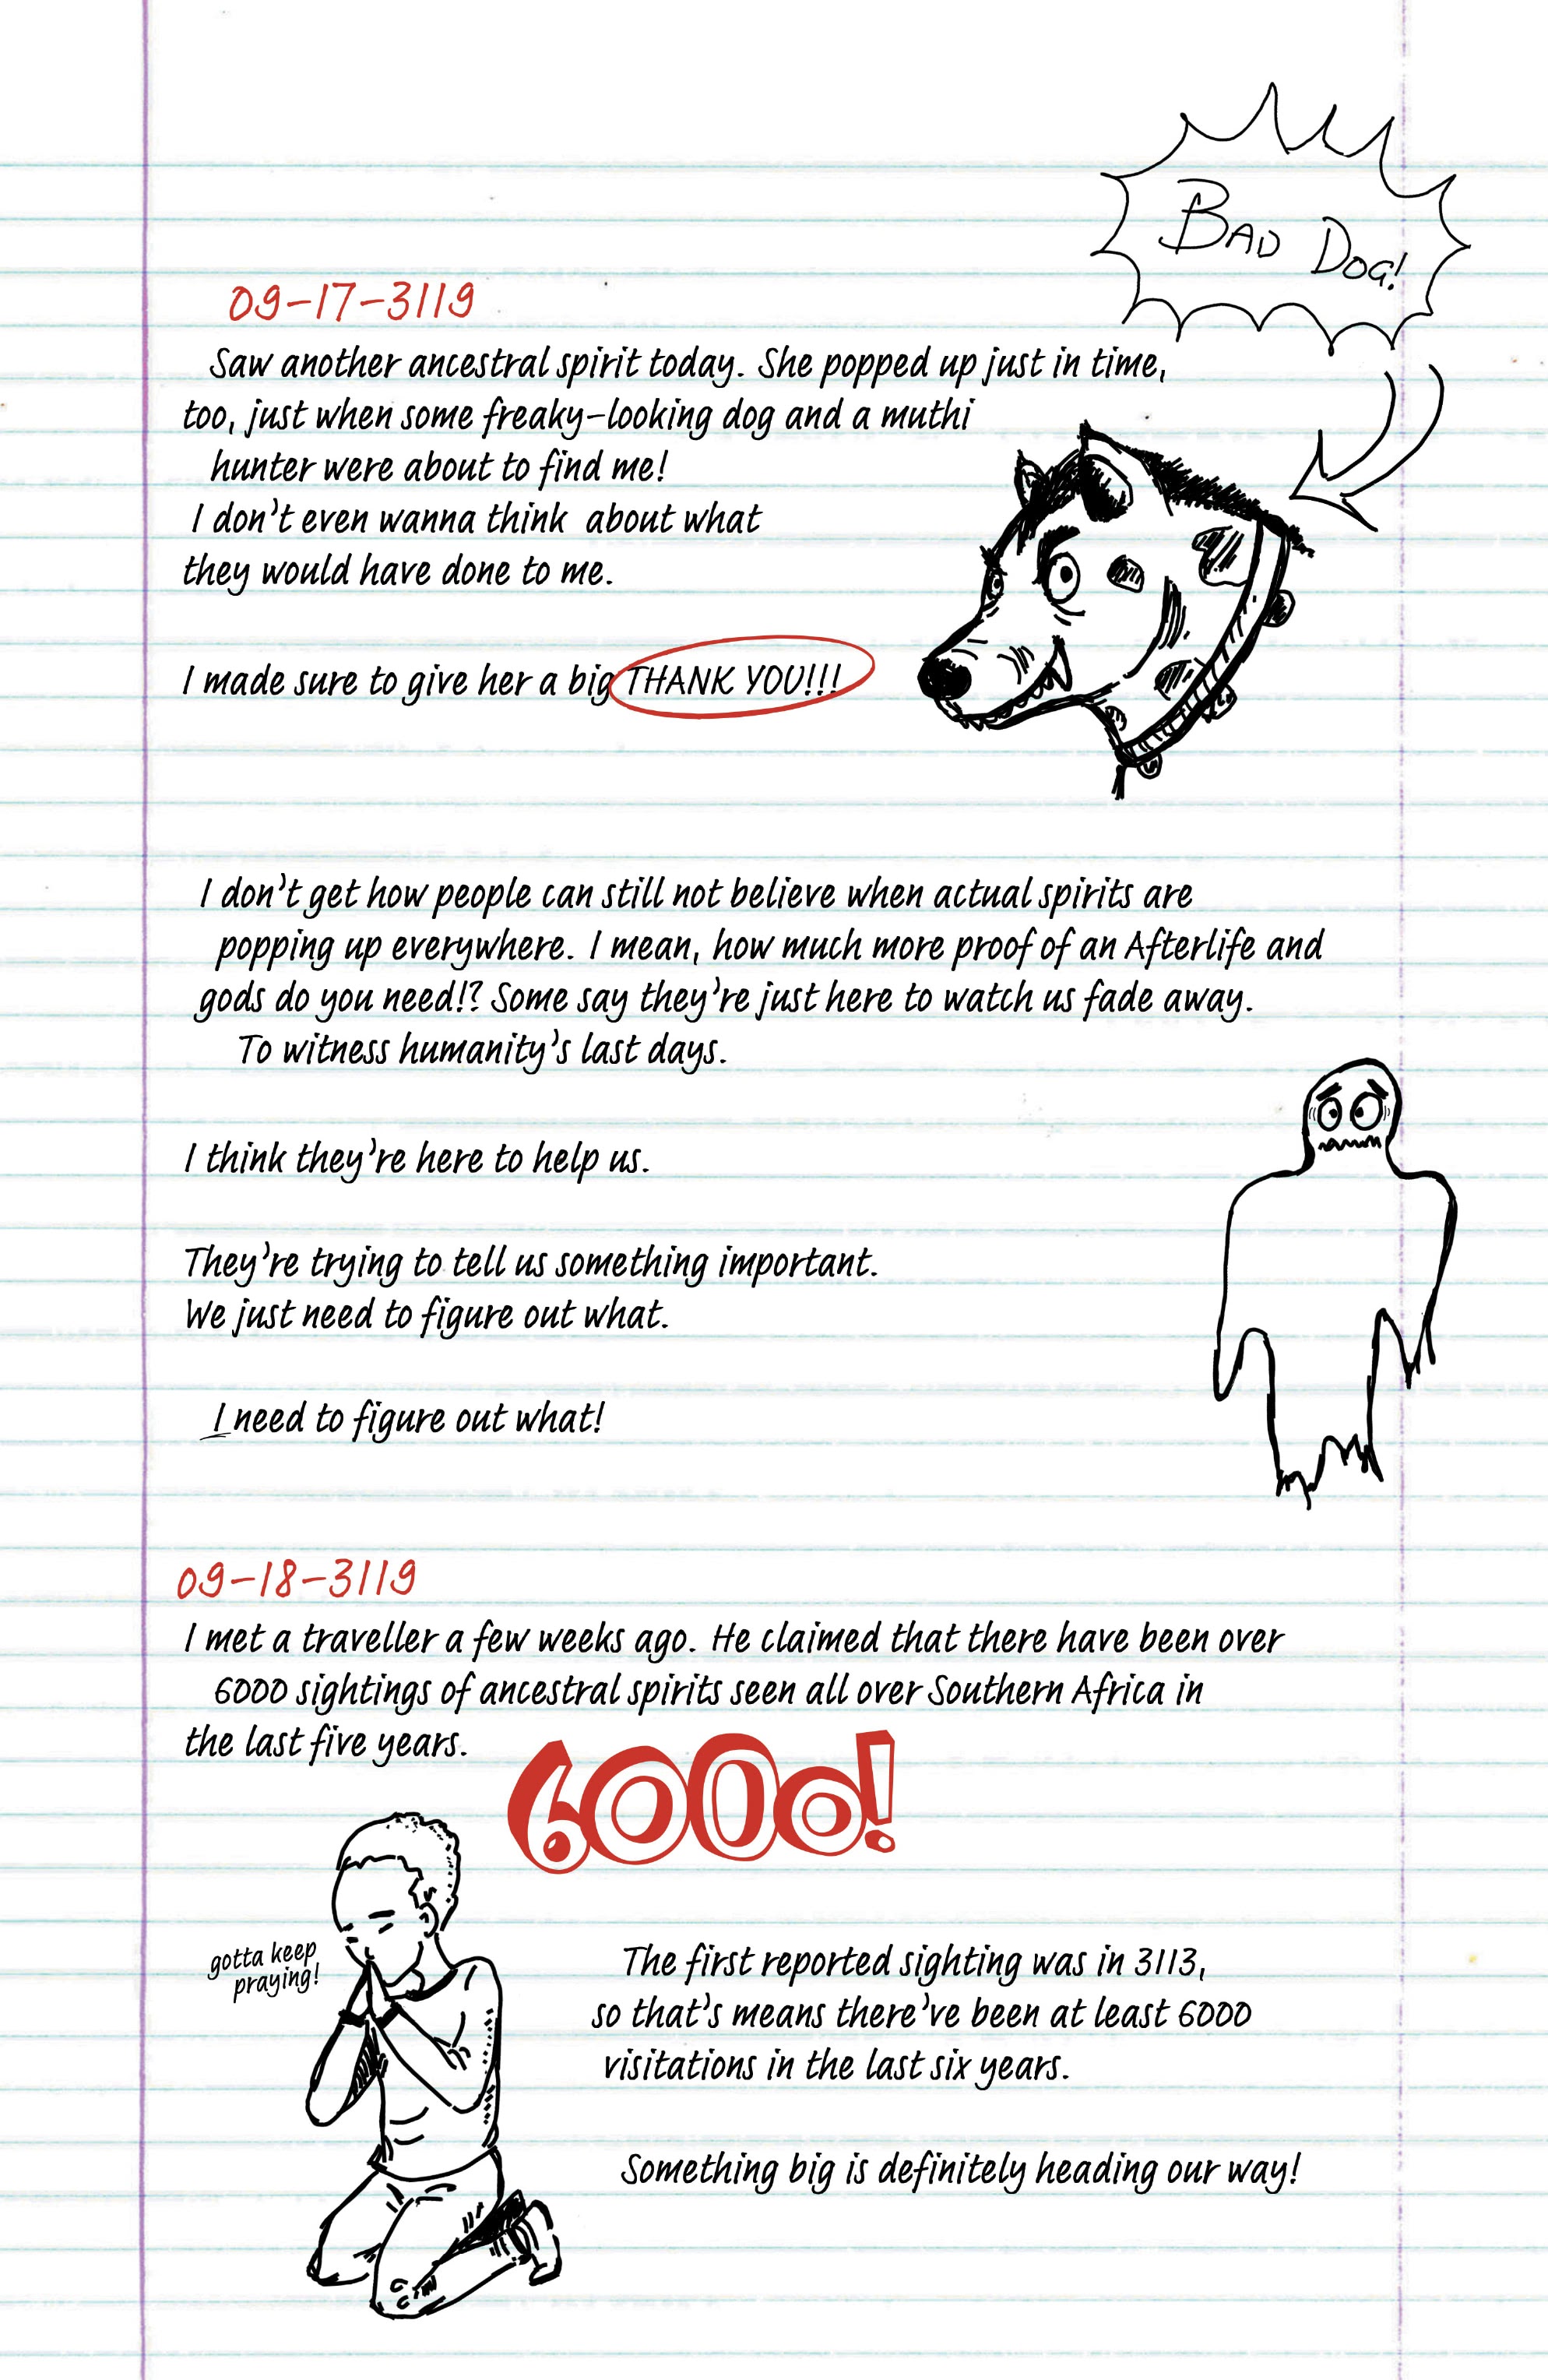 BAD DOG!
09-17-3119
Saw another ancestral spirit today. She popped up just in time,
too, just when some freaky-looking dog and a muthi
hunter were about to find me!
I don't even wanna think about what
they would have done to me.
I made sure to give her a big THANK YOU!!!
I don't get how people can still not believe when actual spirits are
popping up everywhere. I mean, how much more proof of an Afterlife and
gods do you need!? Some say they're just here to watch us fade away.
To witness humanity's last days.
I think they're here to help us.
They're trying to tell us something important.
We just need to figure out what.
I need to figure out what!
09-18-3119
I met a traveller a few weeks ago. He claimed that there have been over
6000 sightings of ancestral spirits seen all over Southern Africa in
the last five years.
6000!
gotta keep
praying!
The first reported sighting was in 3113,
so that's means there've been at least 6000
visitations in the last six years.
Something big is definitely heading our way!